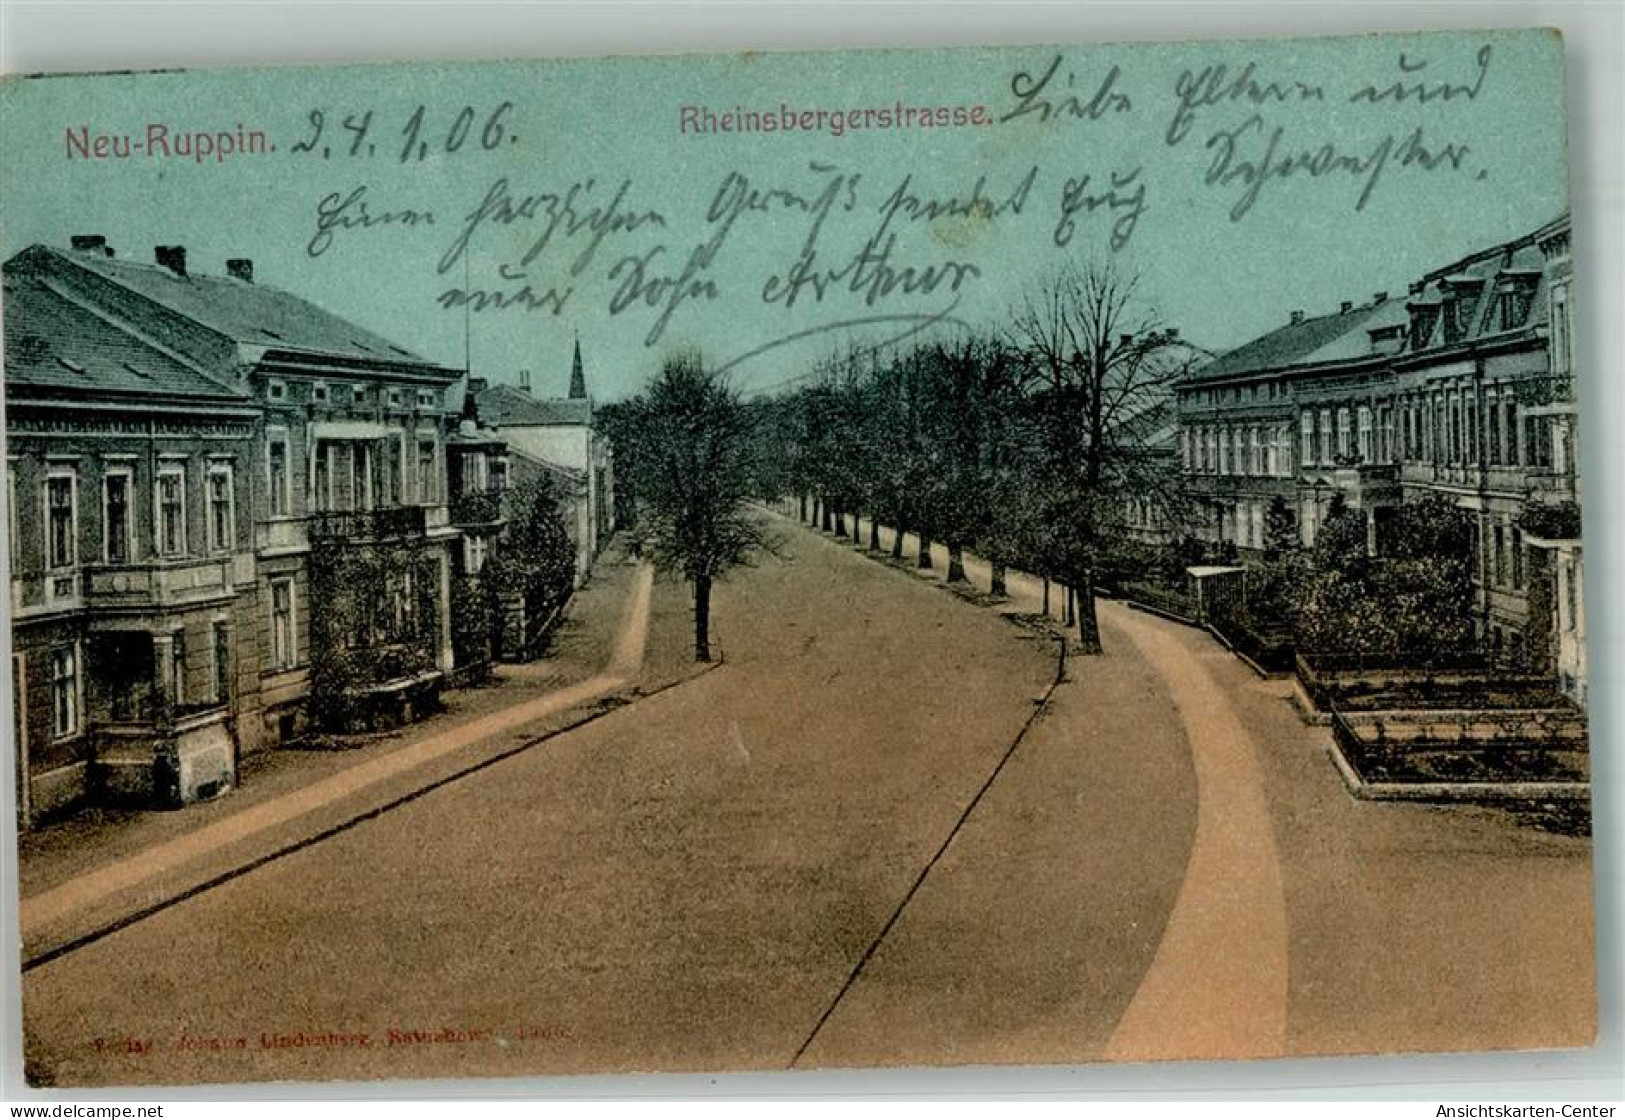 Neu-Ruppin. d. 4. 1. 06.
Rheinsbergerstrasse.
Liebe Eltern und
Schwester.
Einen herzlichen Gruß sendet Eug
euer Sohn Arthur
Verlag Johann Lindenberg, Rathenow 1905.
delcampe.net
Ansichtskarten-Center